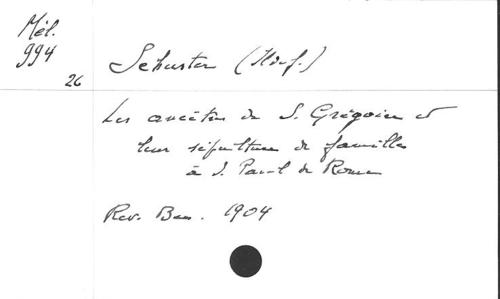 Mél.
994
26
Schuster (Ildef.)
Les ancêtres de S. Grégoire et
leur sépulture de famille
à S. Paul de Rome
Rev. Ben. 1904